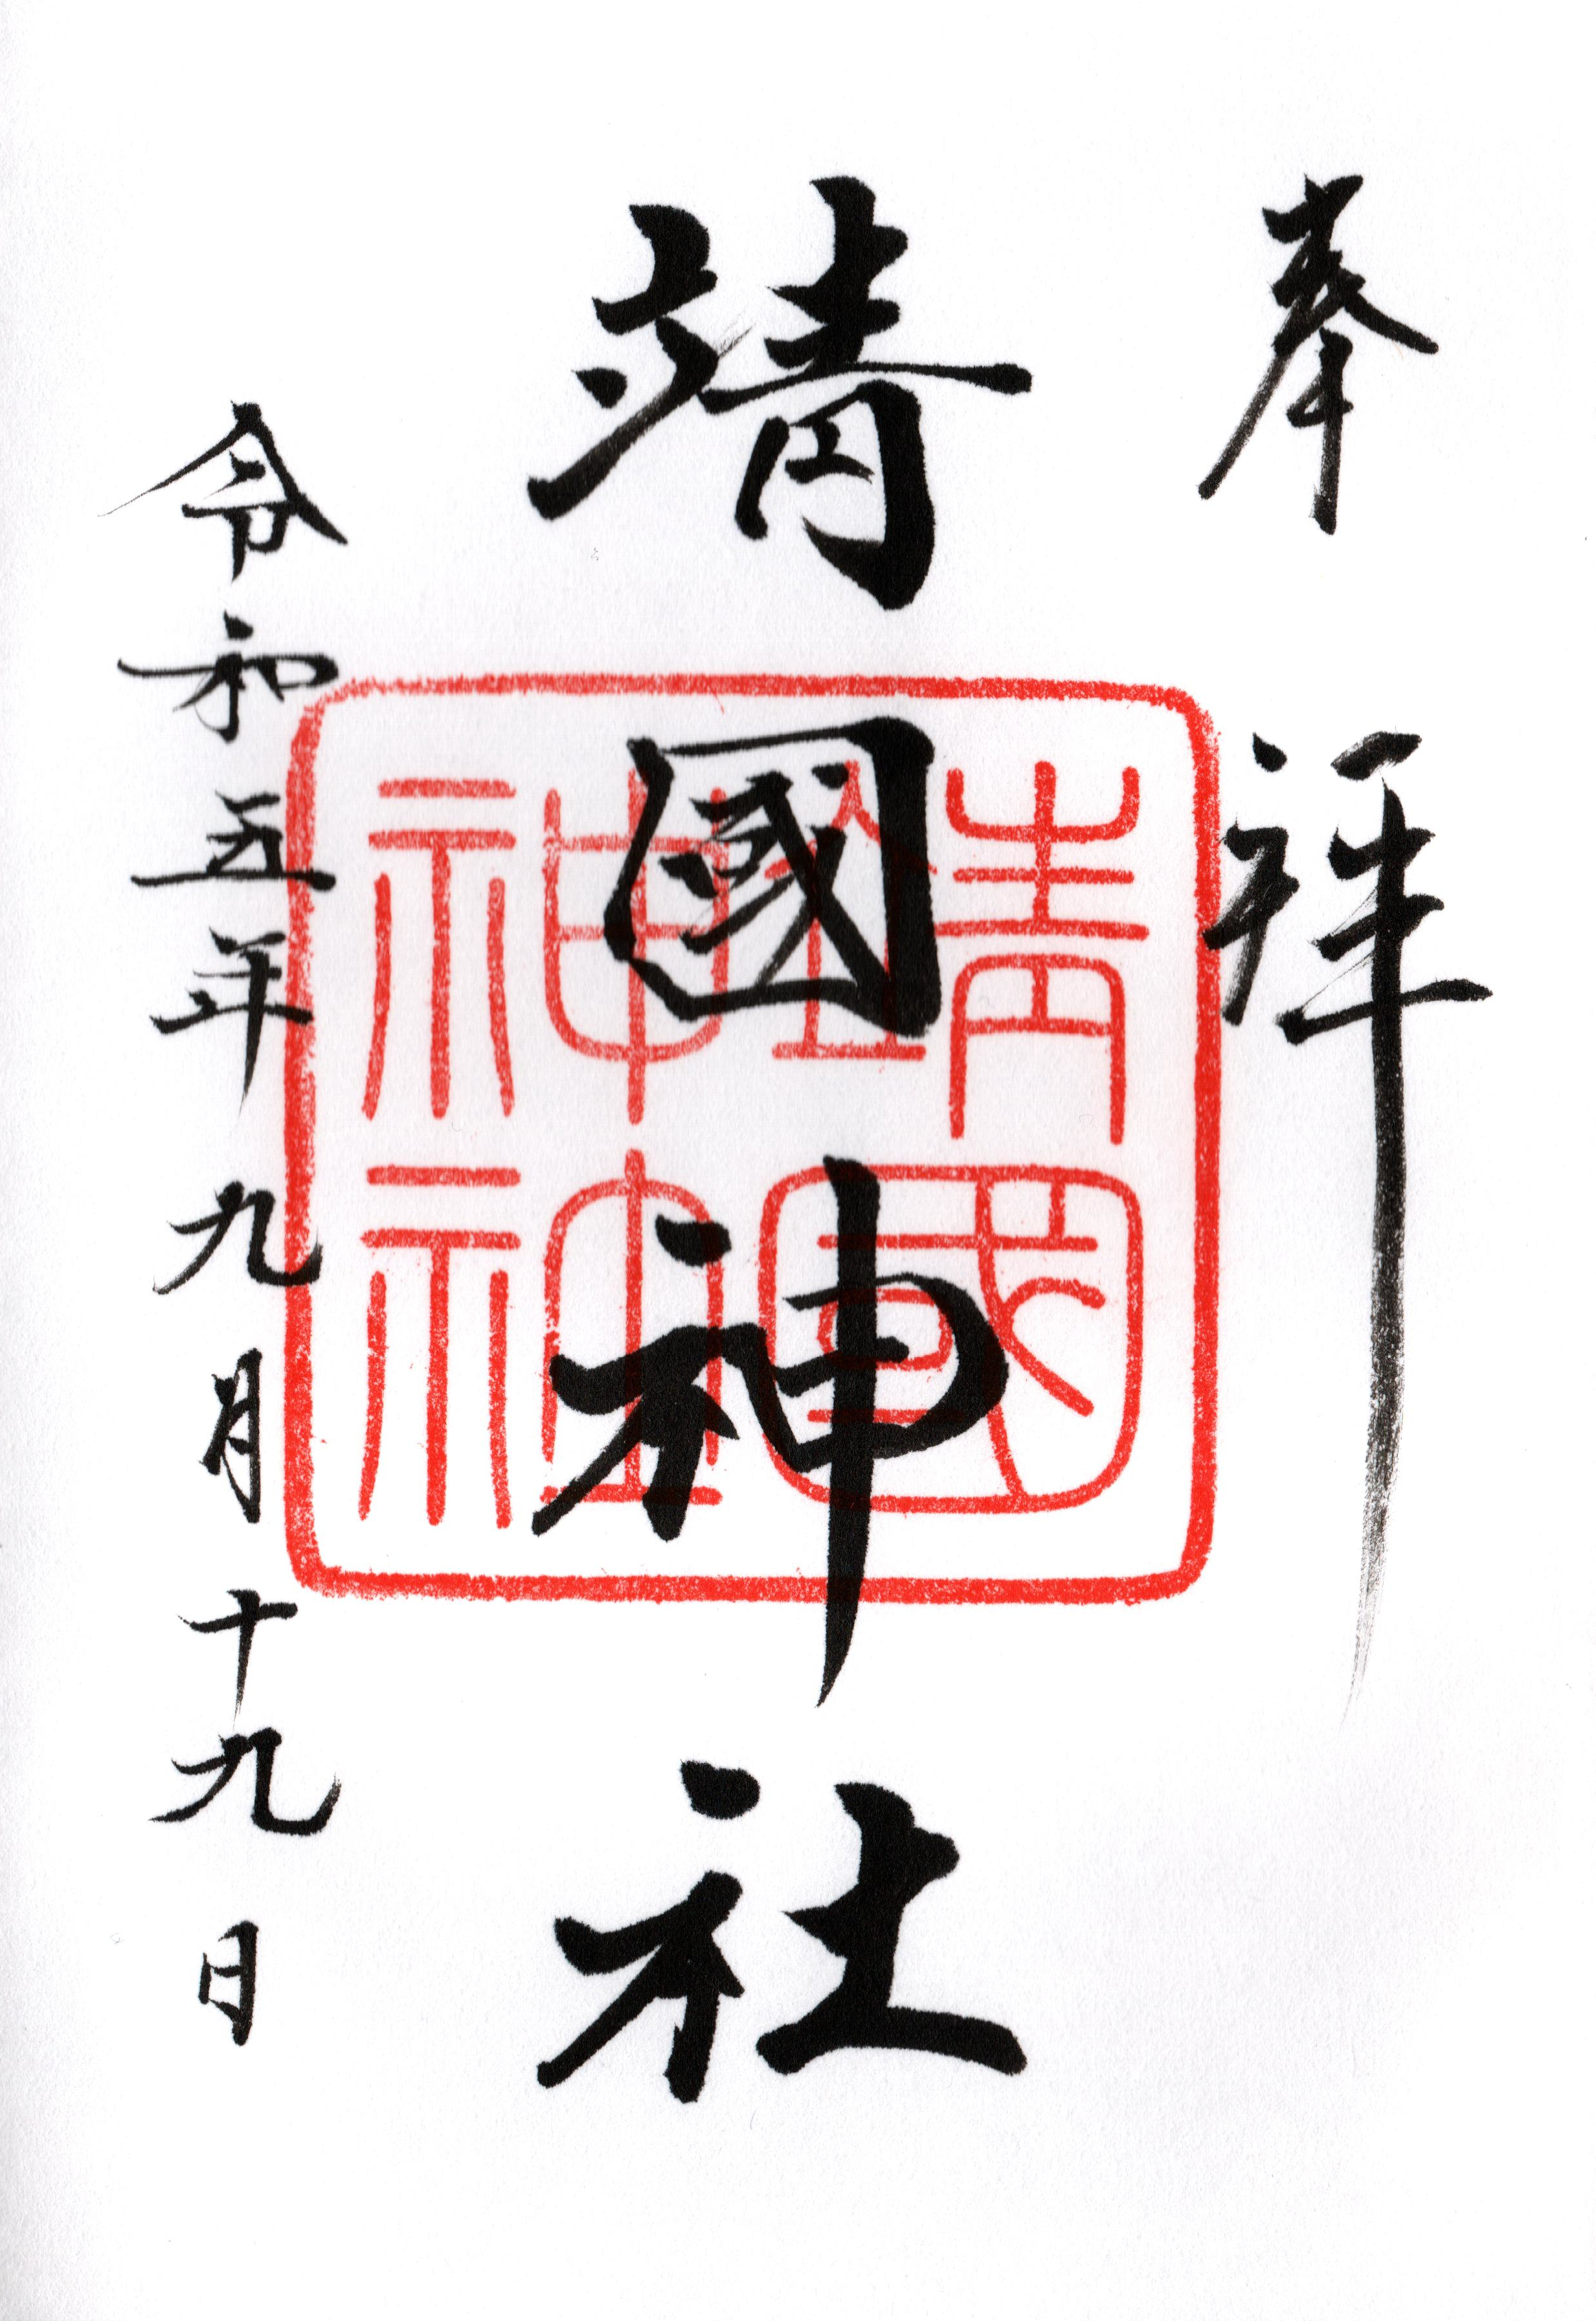 奉拝
靖國神社
令和五年九月十九日
靖國
神社